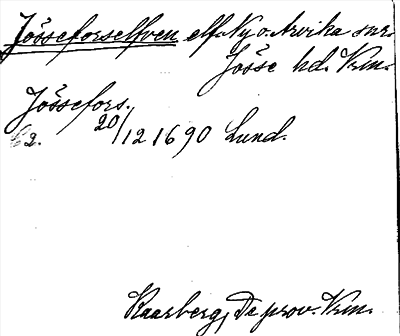 Jösseforselfven elf. Ny o. Arvika snr.
Jösse hd. Vrm.
Jössefors.
62. 20/12 1690 Lund.
Kaarberg, Da prov. Vrm.